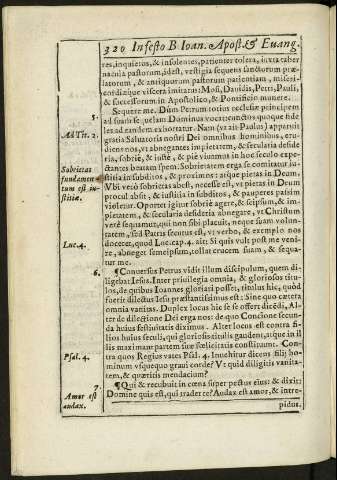 320 In festo B. Ioan. Apost. & Euang.
res, inquietos, & insolentes, patienter tolera, iuxta taber
nacula pastorum, idest, vestigia sequens sanctorum præ-
latorum, & antiquorum pastorum patientiam, miseri-
cordiæque viscera imitatus: Mosi, Dauidis, Petri, Pauli,
& successorum in Apostolico, & Pontificio munere.
5.
Sequere me. Dum Petrum totius ecclesiæ principem
ad suam sequelam Dominus vocat, cunctos quoque fide
les ad eandem exhortatur. Nam (vt ait Paulus) apparuit
Ad Tit. 2.
gratia Saluatoris nostri Dei omnibus hominibus, erudi-
ens nos, vt abnegantes impietatem, & secularia deside
ria, sobriè, & iustè, & piè viuamus in hoc seculo expe-
ctantes beatam spem. Sobrietatem erga se comitatur iu-
Sobrietas
fundamen-
tum est iu-
stitiæ.
stitia in subditos, & proximos: atque pietas in Deum
Vbi verò sobrietas abest, necesse est, vt pietas in Deum
procul absit, & iustitia in subditos, & pauperes passim
violetur. Oportet igitur sobriè agere, & seipsum, & im-
pietatem, & secularia desideria abnegare, vt Christum
verè sequamur, qui non sibi placuit, neque suam volun
tatem, sed Patris secutus est, vt verbo, & exemplo nos
Luc. 4.
doceret, quod Luc. cap. 4. ait: Si quis vult post me veni-
re, abneget semetipsum, tollat crucem suam, & sequa-
tur me.
6.
¶ Conuersus Petrus vidit illum discipulum, quem di-
ligebat Iesus. Inter priuilegia omnia, & gloriosos titu-
los, de quibus Ioannes gloriari posset, titulus hic, quòd
fuerit dilectus Iesu præstantissimus est: Sine quo cætera
omnia vanitas. Duplex locus hic se se offert dicēdi, Al-
ter de dilectione Dei erga nos: de quo Concione secun-
da huius festiuitatis diximus. Alter locus est contra fi-
lios huius seculi, qui gloriosis titulis gaudent, atque in il
lis maximam partem suæ fœlicitatis constituunt. Con-
Psal. 4.
tra quos Regius vates Psal. 4. Inuehitur dicens filij ho-
minum vsquequo graui corde? Vt quid diligitis vanita-
tem, & quæritis mendacium?
7.
¶ Qui & recubuit in cœna super pectus eius: & dixit:
Amor est
audax.
Domine quis est, qui tradet te? Audax est amor, & intre-
pidus.